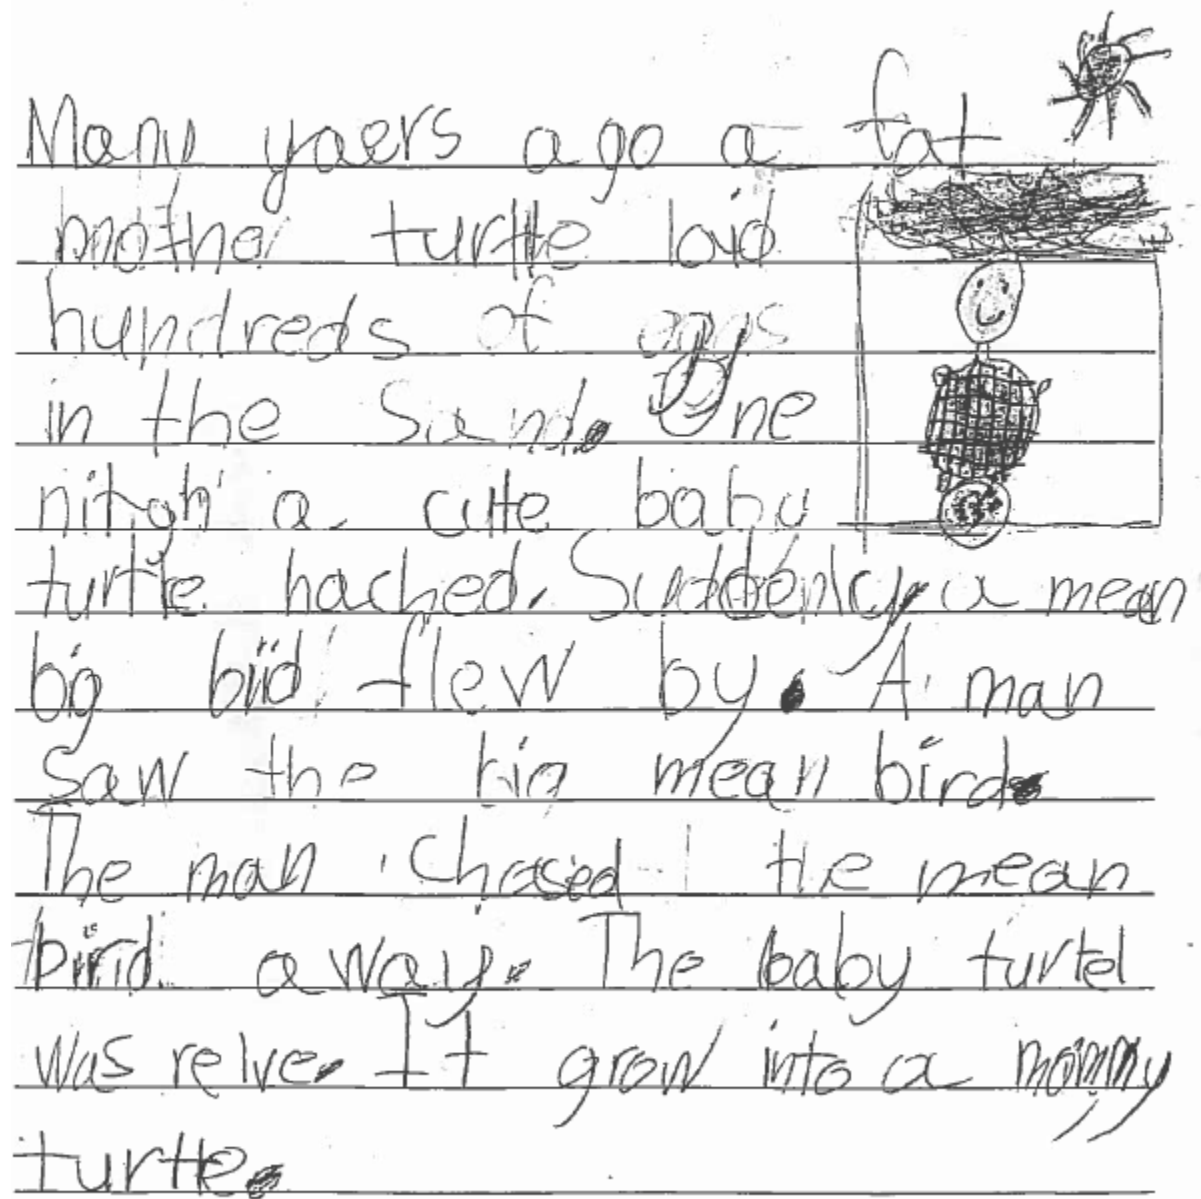 Many yaers ago a fat
mother turtle laid
hundreds of eggs
in the sand. One
nitgh a cute baby
turtle hached. Suddenly, a mean
big bird flew by. A man
saw the big mean bird.
The man chased the mean
bird away. The baby turtel
was relve. It grow into a mommy
turtle.